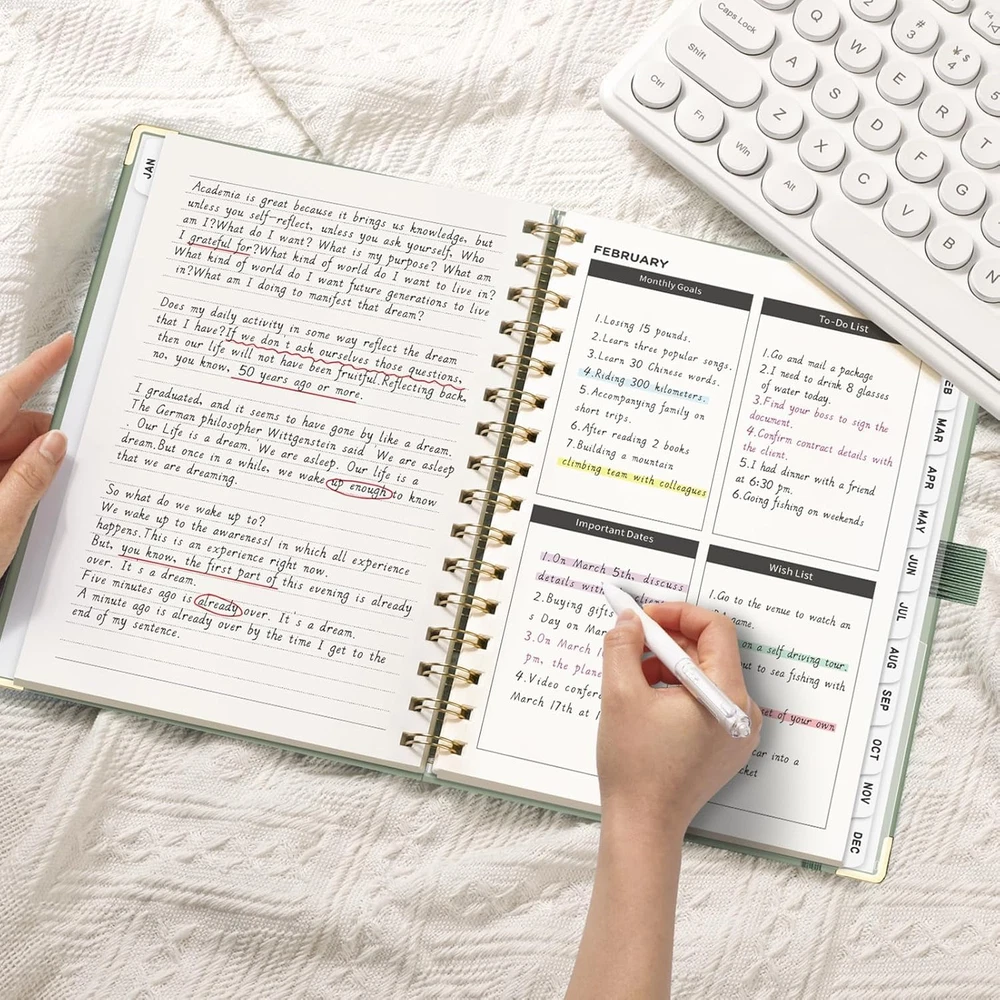 JAN
Academia is great because it brings us knowledge, but
unless you self-reflect, unless you ask yourself, Who
am I?What do I want? What is my purpose? What am
I grateful for?What kind of world do I want to live in?
What kind of world do I want future generations to live
in?What am I doing to manifest that dream?
Does my daily activity in some way reflect the dream
that I have?If we don't ask ourselves those questions,
then our life will not have been fruitful.Reflecting back,
no, you know, 50 years ago or more.
I graduated, and it seems to have gone by like a dream.
The German philosopher Wittgenstein said 'We are asleep
. Our Life is a dream. 'We are asleep. Our life is a
dream.But once in a while, we wake up enough to know
that we are dreaming.
So what do we wake up to?
We wake up to the awareness! in which all experience
happens.This is an experience right now.
But, you know, the first part of this evening is already
over. It's a dream.
Five minutes ago is already over. It's a dream.
A minute ago is already over by the time I get to the
end of my sentence.
FEBRUARY
Monthly Goals
1.Losing 15 pounds.
2.Learn three popular songs.
3.Learn 30 Chinese words.
4.Riding 300 kilometers.
5.Accompanying family on
short trips.
6.After reading 2 books
7.Building a mountain
climbing team with colleagues
To-Do List
1.Go and mail a package
2.I need to drink 8 glasses
of water today.
3.Find your boss to sign the
document.
4.Confirm contract details with
the client.
5.I had dinner with a friend
at 6:30 pm.
6.Going fishing on weekends
Important Dates
1.On March 5th, discuss
details with
2.Buying gifts
s Day on Mar
3.On March 1
pm, the plane
4.Video confere
March 17th at 1
Wish List
1.Go to the venue to watch an
game.
on a self driving tour.
out to sea fishing with
set of your own
car into a
cket
EB
MAR
APR
MAY
JUN
JUL
AUG
SEP
OCT
NOV
DEC
Caps Lock
Q
2
# 3
¥ $ 4
F4
Shift
A
W
E
R
5
Ctrl
Z
S
D
F
T
Fn
X
C
V
G
Win
Alt
B
N